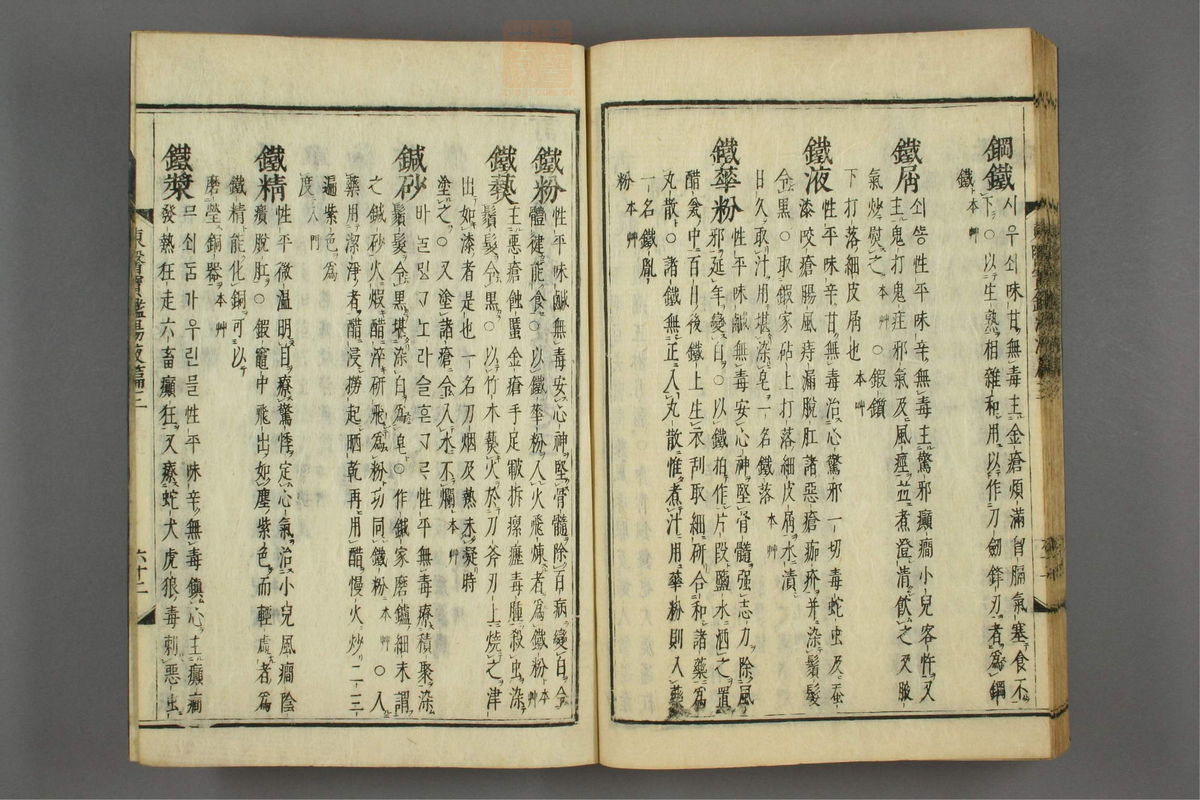 鋼鐵 시우쇠味甘無毒主金瘡煩滿胷膈氣塞食不
下○以生熟相雜和用以作刀劒鋒刃者爲鋼
鐵 本艸
鐵屑 쇠性平味辛無毒主驚邪癲癎小兒客忤又
主鬼打鬼疰邪氣及風痙並煮澄淸飮之又腋
氣炒熨之 本艸 ○鍜鐵
下打落細皮屑也 本艸
鐵液 性平味辛甘無毒治心驚邪一切毒蛇虫及蚕
漆咬瘡腸風痔漏脫肛諸惡瘡疥并染鬚髮
令黑○取鍜家砧上打落細皮屑水漬
日久取汁用堪染皂一名鐵落 本艸
鐵華粉 性平味鹹無毒安心神堅骨髓强志力除風
邪延年變白○以鐵拍作片段鹽水洒之置
醋瓮中百日後鐵上生衣刮取細硏合和諸藥爲
丸散○諸鐵無正入丸散惟煮汁用華粉則入藥
一名鐵胤
粉 本艸
鐵粉 性平味鹹無毒安心神堅骨髓除百病變白令
體健能食○以鐵華粉入火飛煉者爲鐵粉 本艸
鐵爇 主惡瘡蝕䘌金瘡手足皸拆瘰癧毒腫殺虫染
鬚髮令黑○以竹木爇火於刀斧刃上燒之津
出如漆者是也一名刀烟及熱未凝時
塗之○又塗諸瘡令入水不爛 本艸
鍼砂 性平無毒療積聚染
鬚髮令黑堪染白爲皂○作鍼家磨鑢細末謂
之鍼砂火煆醋淬硏飛爲粉功同鐵粉 本艸 ○入
藥用潔淨者醋浸撈起晒乾再用醋慢火炒二三
遍紫色爲
度 入門
鐵精 性平微溫明目療驚悸定心氣治小兒風癎陰
㿉脫肛○鍜竈中飛出如塵紫色而輕虛者爲
鐵精能化銅可以
磨瑩銅器 本艸
鐵漿 性平味辛無毒鎭心主癲癎
發熱狂走六畜癲狂又療蛇犬虎狼毒刺惡虫
東醫寶鑑湯液篇三
六十二